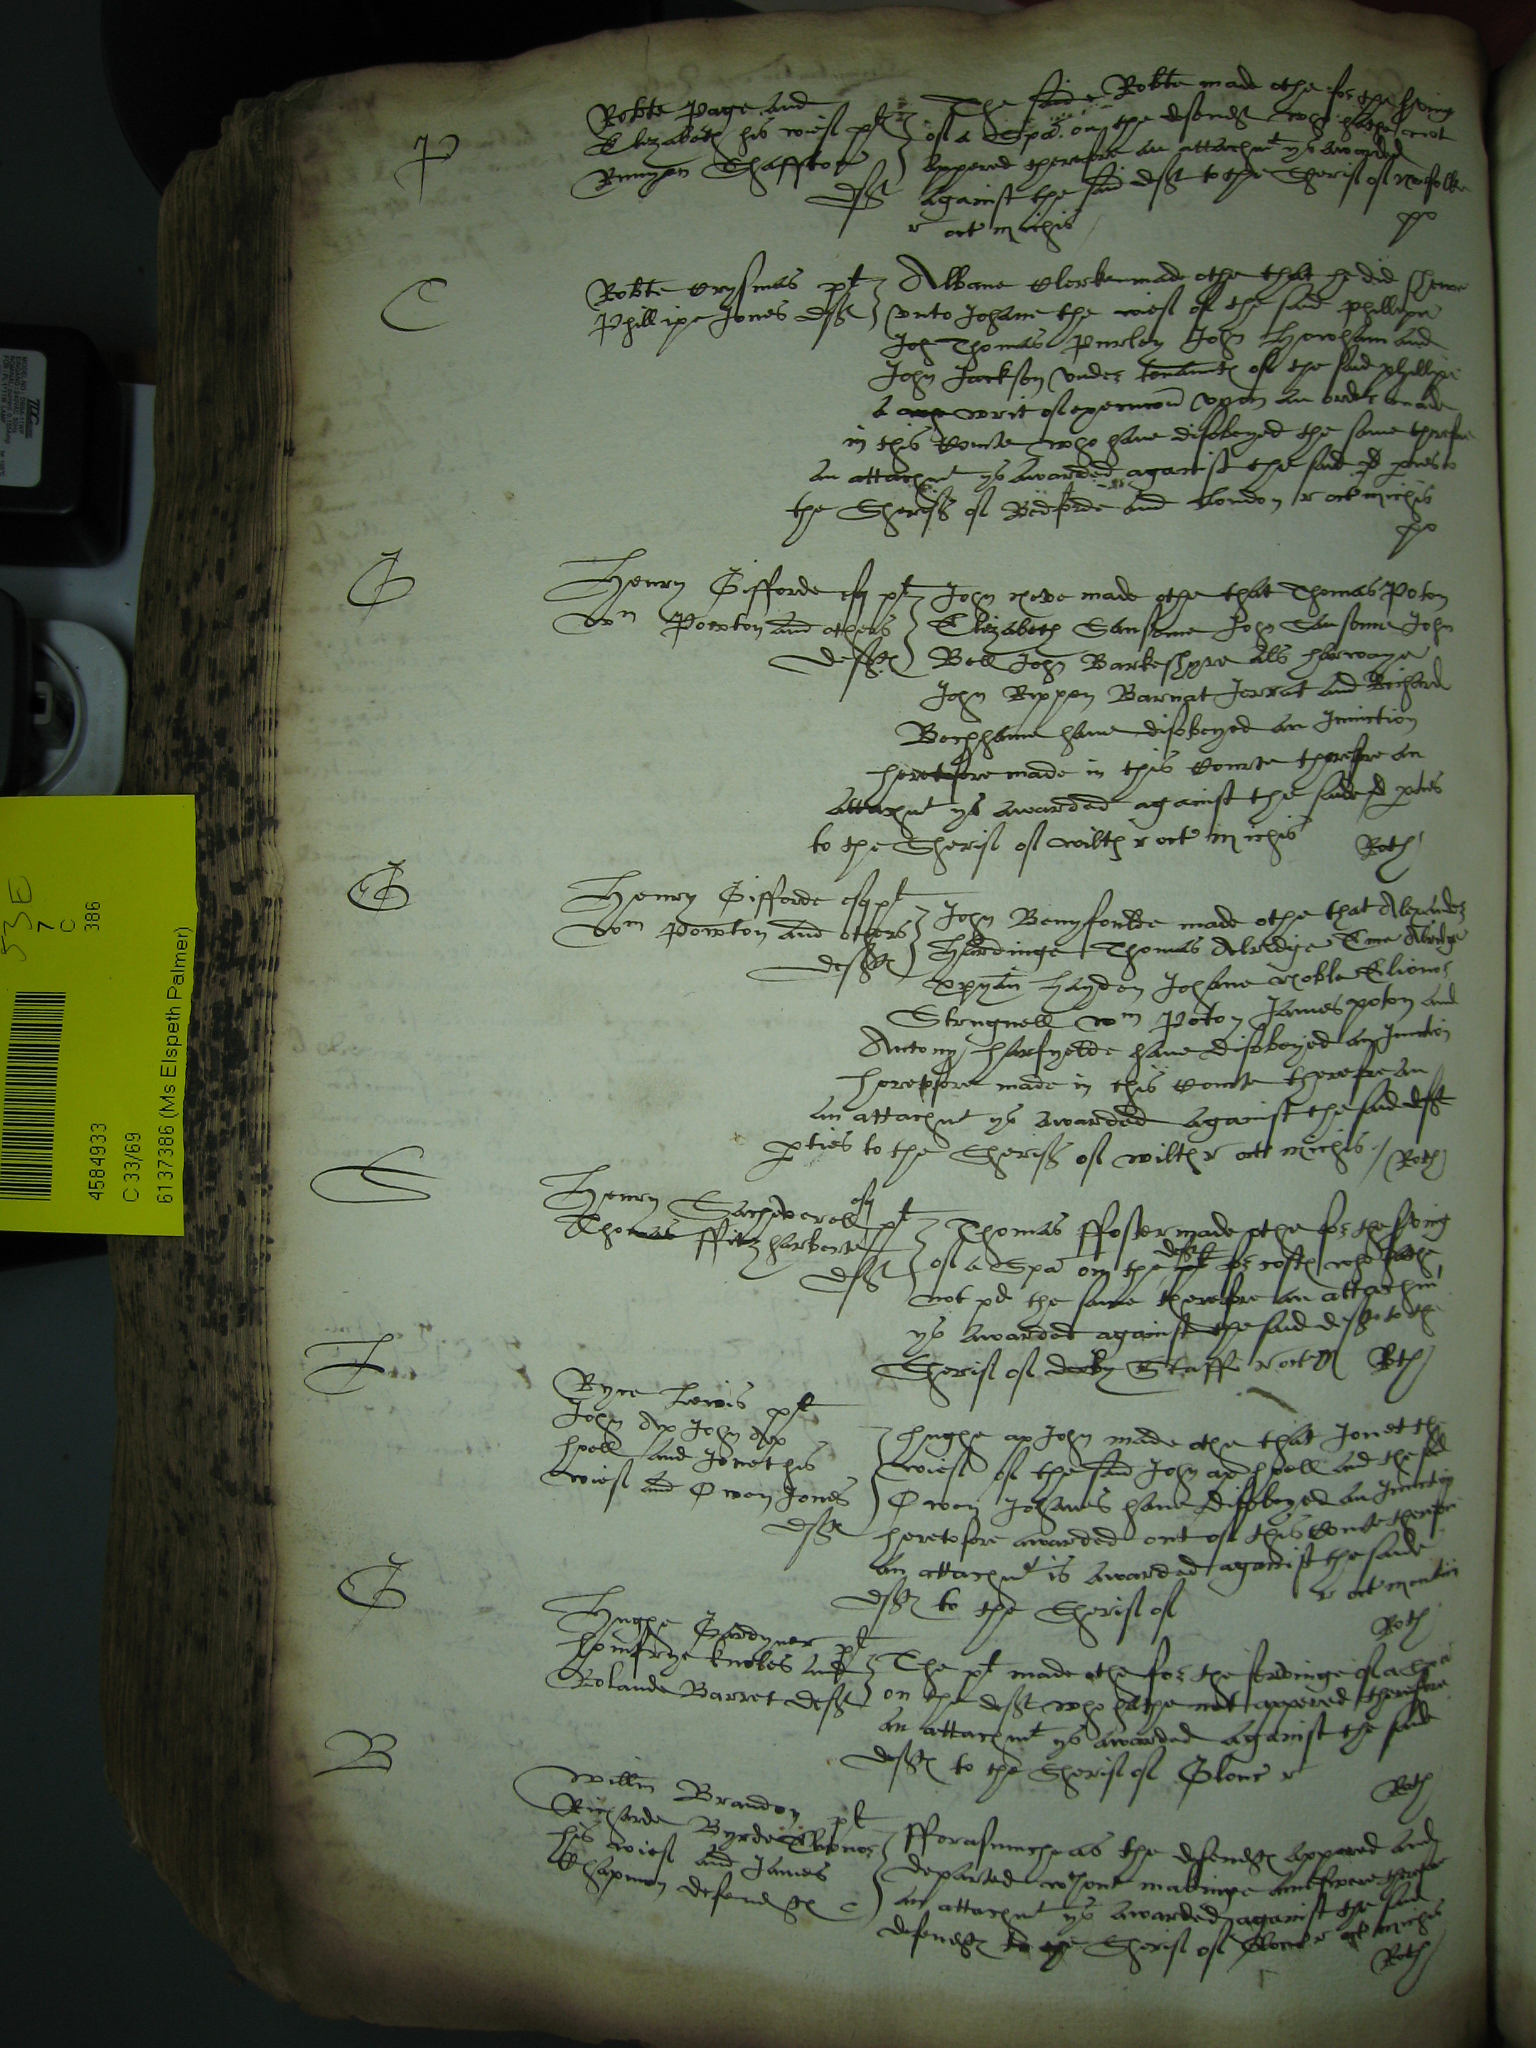 P
Robte Page and
Elizabeth his wief plt
Rumyon Shaffton
defft
The said Robte made othe for the sving
of a Spa on the defendt who hathe not
appered therefore an attachmt ys awarded
against the said defft to the Sherif of Norfolke
r oct michis
po
C
Robte Crysmas plt
Phillipe Jones defft
Albane Clerke made othe that he did shewe
vnto Johane the wief of the said phillipe
Thomas Purley John Howham and
John Jackson vnder tenamts of the said phillipe
a writ of execucion vpon an order made
in this Courte who have disobeyed the same therfore
an attachmt ys awarded against the said pties to
the Sheriffs of Bedforde and London r oct michis
po
G
Henry Gifforde esq plt
Wm Powton and others
deffts
John neve made othe that Thomas Poton
Elizabeth Sansome John Sansome John
Bell John Barkeshyre als harwaye
John Rippen Barnat Jarrat and Richard
Bechhame have disobeyed an Iniunction
heretofore made in this Courte therefore an
attachmt ys awarded against the saide pties
to the Sherif of wilth r oct michis
Roth
G
Henry Gifforde esq plt
Wm Powton and others
deffts
John Benyfoulde made othe that Alexander
Hardinge Thomas Alredige Eme Alredge
hayden Johane noble Elionor
Strugnell Wm Poton James poton and
Antony harfyelde have disobeyed an Iniunction
heretofore made in this Courte therefore an
an attachmt ys awarded against the said defft
pties to the Sheriff of wilth r oct michis
Roth
S
Henry Sacheverell esq plt
Thomas ffitzharbert
defft
Thomas ffoster made othe for the sving
of a Spa on the plt defft for costs who hathe
not pd the same therefore an attachmt
ys awarded against the said defft to the
Sherif of derby Staff r oct M
Roth
L
Ryce Lewis plt
John Ap John Ap
hoell and Jonet his
wief and Owen Jones
defft
hughe ap John made othe that Jonet the
wief of the said John ap hoell and the said
Owen Johanes have disobeyed an Iniunction
heretofore awarded out of this Courte therefore
an attachmt is awarded against the saide
defft to the Sherif of
r oct
Roth
G
Hughe Gardyner plt
homfrye knoles and
Rolande Barret defft
The plt made othe for the servinge of a Spa
on the defft who hathe not appered therefore
an attachmt ys awarded against the saide
deffts to the Sherif of Glouc r
Roth
B
Willm Brandon plt
Richarde Byrde Elionor
his wief and James
Chapmon defendts
fforasmuche as the defendts appered and
departed wthout makinge aunswere therefore
an attachmt ys awarded against the said
defendts to the Sherif of Glouc r oct michis
Roth
53E
7
C
386
4584933
C 33/69
6137386 (Ms Elspeth Palmer)